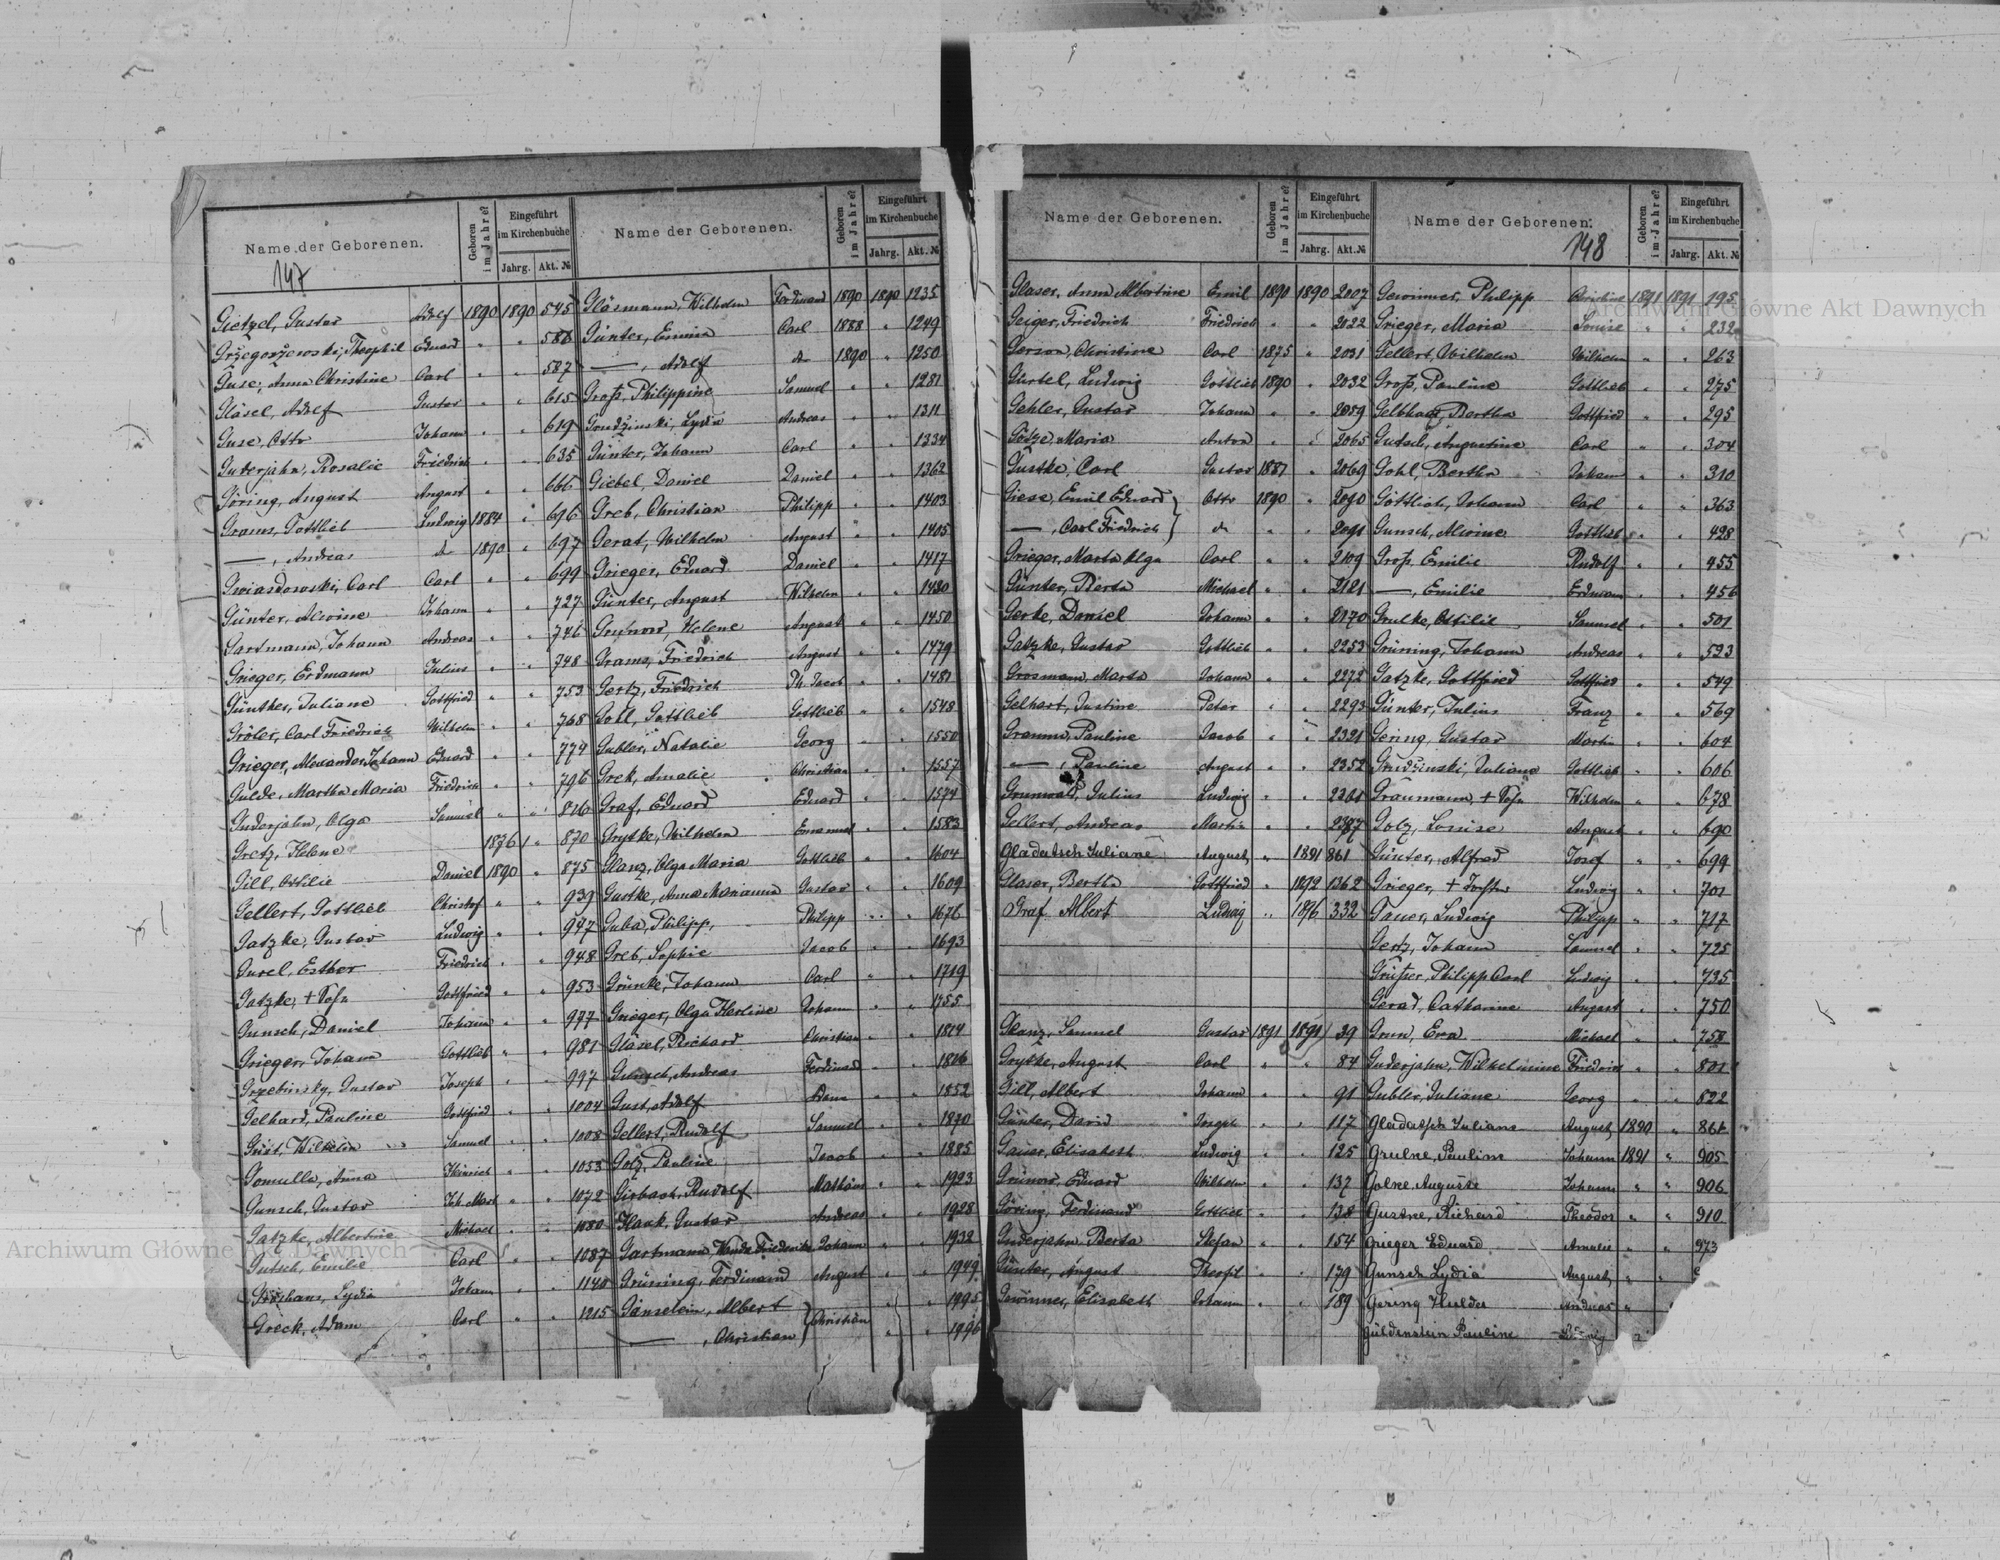 Name der Geborenen.
147
Geboren im Jahre?
Eingeführt im Kirchenbuche
Jahrg. Akt. №
Gietzel, Gustav Adolf 1890 1890 545
Grzegorzewski, Theophil Eduard " " 586
Guse, Anna Christine Carl " " 587
Gläsel, Adolf Gustav " " 615
Guse, Otto Johann " " 619
Guderjahn, Rosalie Friedrich " " 635
Göring, August August " " 666
Grams, Gottlieb Ludwig 1884 " 696
—, Andreas do 1890 " 697
Gwiasdowski, Carl Carl " " 699
Günter, Alwine Johann " " 727
Gartmann, Johann Andreas " " 746
Grieger, Erdmann Julius " " 748
Günther, Juliane Gottfried " " 753
Gröler, Carl Friedrich Wilhelm " " 768
Grieger, Alexander Johann Eduard " " 774
Gulde, Martha Maria Friedrich " " 796
Guderjahn, Olga Samuel " " 816
Gretz, Helene 1876 " 870
Gill, Ottilie Daniel 1890 " 875
Gellert, Gottlieb Christof " " 939
Gatzke, Gustav Ludwig " " 947
Gurel, Esther Friedrich " " 948
Gatzke, + Sohn Gottfried " " 953
Gunsch, Daniel Johann " " 977
Grieger, Johann Gottlieb " " 981
Grzebinsky, Gustav Joseph " " 997
Gelhard, Pauline Gottfried " " 1004
Grist, Wilhelm Samuel " " 1008
Gomulla, Anna Heinrich " " 1053
Gunsch, Gustav Joh. Mart " " 1072
Gatzke, Albertine Michael " " 1080
Gutsch, Emilie Carl " " 1087
Groshans, Lydia Johann " " 1140
Greck, Adam Carl " " 1215
Name der Geborenen.
Geboren im Jahre?
Eingeführt im Kirchenbuche
Jahrg. Akt. №
Gläsmann, Wilhelm Ferdinand 1890 1890 1235
Günter, Emma Carl 1888 " 1249
—, Adolf do 1890 " 1250
Groß, Philippine Samuel " " 1281
Grudzinski, Lydia Andreas " " 1311
Günter, Johann Carl " " 1334
Giebel, Daniel Daniel " " 1362
Greb, Christian Philipp " " 1403
Gerat, Wilhelm August " " 1405
Grieger, Eduard Daniel " " 1417
Günter, August Wilhelm " " 1430
Grunow, Helene August " " 1450
Grams, Friedrich August " " 1479
Gertz, Friedrich Ph. Jacob " " 1481
Goll, Gottlieb Gottlieb " " 1548
Gubler, Natalie Georg " " 1550
Grek, Amalie Christian " " 1557
Graf, Eduard Eduard " " 1574
Grytke, Wilhelm Emanuel " " 1583
Glanz, Olga Maria Gottlieb " " 1604
Gustke, Anna Marianna Gustav " " 1609
Guba, Philipp, Philipp " " 1676
Greb, Sophie Jacob " " 1693
Grünke, Johann Carl " " 1719
Grieger, Olga Herline Johann " " 1755
Gläsel, Richard Christian " " 1814
Gunsch, Andreas Ferdinand " " 1816
Gust, Adolf Adam " " 1852
Gellert, Rudolf Samuel " " 1870
Golz, Pauline Jacob " " 1885
Girbach, Rudolf Mathäus " " 1923
Haak, Gustav Andreas " " 1928
Gartmann, Wanda Friederike Johann " " 1932
Grüning, Ferdinand August " " 1949
Gänselein, Albert } Christian " " 1995
—, Christian } " " 1996
Name der Geborenen.
Geboren im Jahre?
Eingeführt im Kirchenbuche
Jahrg. Akt. №
Glaser, Anna Albertine Emil 1890 1890 2007
Geiger, Friedrich Friedrich " " 2022
Gerson, Christine Carl 1875 " 2031
Gürtel, Ludwig Gottlieb 1890 " 2032
Gehler, Gustav Johann " " 2059
Götze, Maria Anton " " 2065
Gustke, Carl Gustav 1887 " 2069
Giese, Emil Eduard } Otto 1890 " 2090
—, Carl Friedrich } do " " 2091
Grieger, Marta Olga Carl " " 2109
Günter, Berta Michael " " 2121
Gerke, Daniel Johann " " 2170
Gatzke, Gustav Gottlieb " " 2253
Grosmann, Marta Johann " " 2272
Gelhart, Justine Peter " " 2293
Gramm, Pauline Jacob " " 2321
—, Pauline August " " 2352
Grunwald, Julius Ludwig " " 2361
Gellert, Andreas Martin " " 2387
Gladatsch Juliane August " 1891 861
Glaser, Bertha Gottfried " 1892 1362
Graf Albert Ludwig " 1896 332
Glanz, Samuel Gustav 1891 1891 39
Grytke, August Carl " " 84
Gill, Albert Johann " " 91
Günter, David Joseph " " 117
Gauer, Elisabeth Ludwig " " 125
Grunow, Eduard Wilhelm " " 137
Göring, Ferdinand Gottlieb " " 138
Guderjahn, Berta Stefan " " 154
Günter, August Theofil " " 179
Gewinner, Elisabeth Johann " " 189
Name der Geborenen.
148
Geboren im Jahre?
Eingeführt im Kirchenbuche
Jahrg. Akt. №
Gewinner, Philipp Christine 1891 1891 195
Grieger, Maria Louise " " 232
Gellert, Wilhelm Wilhelm " " 263
Groß, Pauline Gottlieb " " 275
Gelbhaar, Bertha Gottfried " " 295
Gutsch, Augustine Carl " " 304
Gohl, Bertha Johann " " 310
Göttlich, Johann Carl " " 363
Gunsch, Alwine Gottlieb " " 428
Groß, Emilie Rudolf " " 455
—, Emilie Erdmann " " 456
Grulke, Ottilie Samuel " " 501
Grüning, Johann Andreas " " 523
Gatzke, Gottfried Gottfried " " 549
Günter, Julius Franz " " 569
Gering, Gustav Martin " " 604
Grudzinski, Juliana Gottlieb " " 606
Graumann, + Sohn Wilhelm " " 678
Golz, Louise August " " 690
Günter, Alfred Josef " " 699
Grieger, + Tochter Ludwig " " 701
Gauer, Ludwig Philipp " " 717
Gertz, Johann Samuel " " 725
Grützer, Philipp Carl Ludwig " " 735
Gerad, Catharine August " " 750
Grun, Eva Michael " " 758
Guderjahn, Wilhelmine Friedrich " " 801
Gubler, Juliane Georg " " 822
Gladatsch Juliane August 1890 " 861
Grulne, Pauline Johann 1891 " 905
Golne Auguste Johann " " 906
Gustne, Richard Theodor " " 910
Grieger Eduard Amalie " " 973
Gunsch Lydia August "
Gering Hulda Andreas "
Güldenstein Pauline Ludwig
Archiwum Główne Akt Dawnych
Archiwum Główne Akt Dawnych